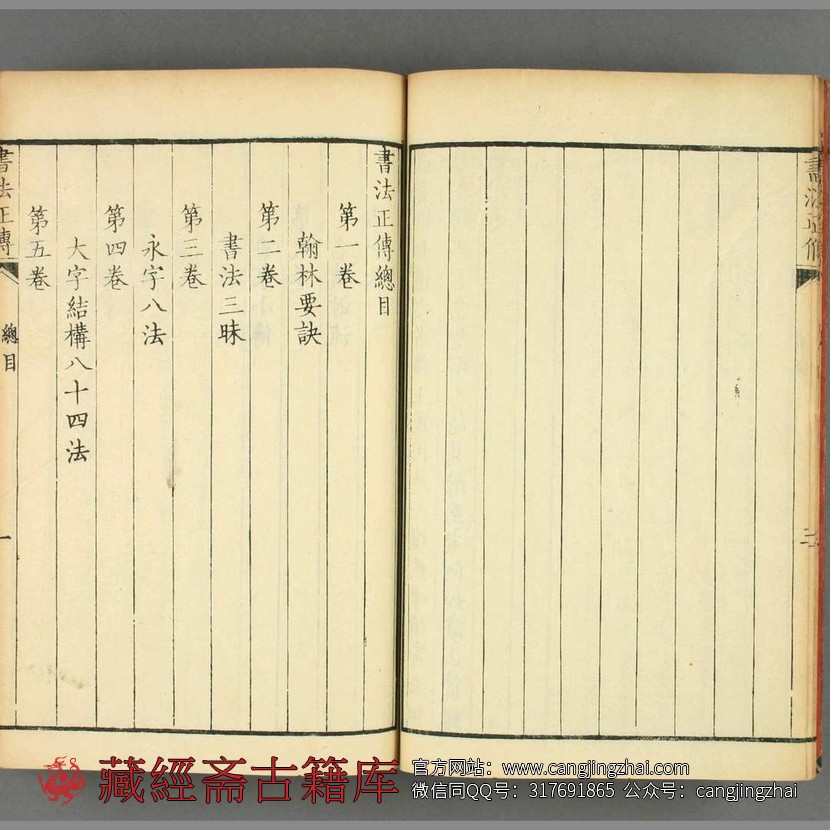 書法正傳總目
第一卷
翰林要訣
第二卷
書法三昧
第三卷
永字八法
第四卷
大字結構八十四法
第五卷
書法正傳
總目
一
藏經斋古籍库
官方网站：www.cangjingzhai.com
微信同QQ号：317691865 公众号：cangjingzhai